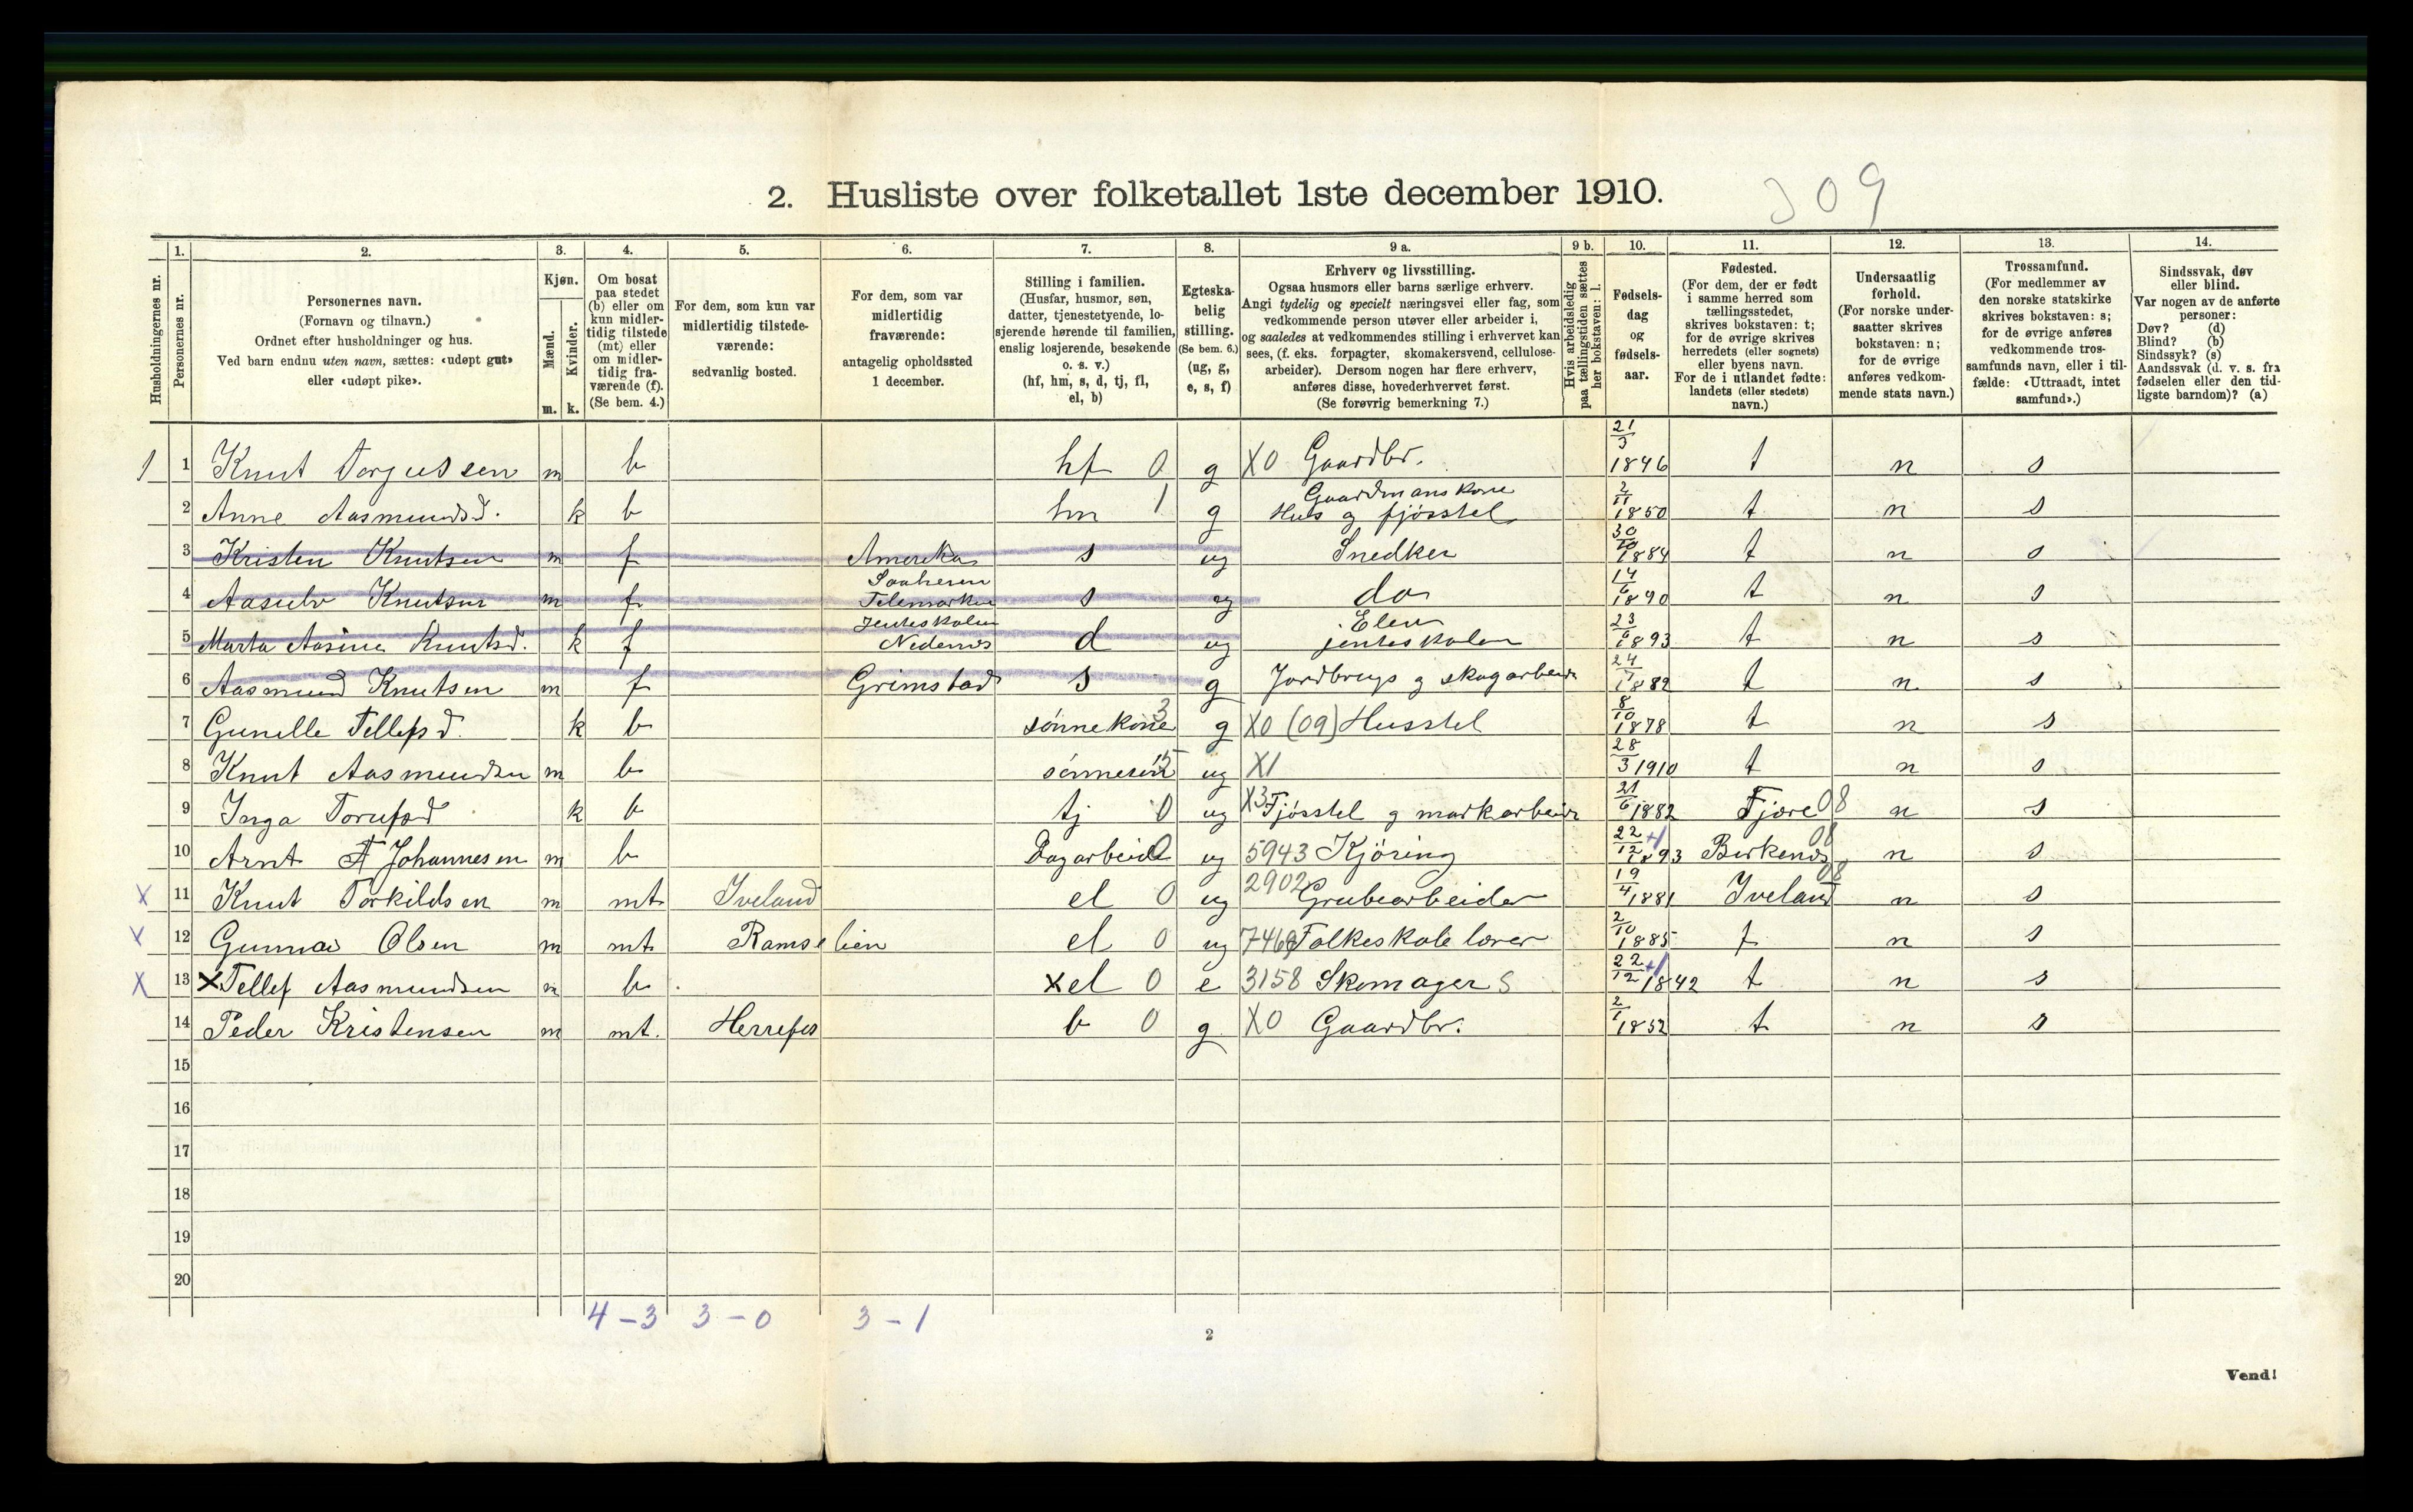 309
2. Husliste over folketallet 1ste december 1910.
1. 2. 3. 4. 5. 6. 7. 8. 9 a. 9 b. 10. 11. 12. 13. 14.
Husholdningernes nr.
Personernes nr.
Personernes navn.
(Fornavn og tilnavn.)
Ordnet efter husholdninger og hus.
Ved barn endnu uten navn, sættes: «udøpt gut»
eller «udøpt pike».
Kjøn.
Mænd.
Kvinder.
m. k.
Om bosat
paa stedet
(b) eller om
kun midler-
tidig tilstede
(mt) eller
om midler-
tidig fra-
værende (f).
(Se bem. 4.)
For dem, som kun var
midlertidig tilstede-
værende:
sedvanlig bosted.
For dem, som var
midlertidig
fraværende:
antagelig opholdssted
1 december.
Stilling i familien.
(Husfar, husmor, søn,
datter, tjenestetyende, lo-
sjerende hørende til familien,
enslig losjerende, besøkende
o. s. v.)
(hf, hm, s, d, tj, fl,
el, b)
Egteska-
belig
stilling.
(Se bem. 6.)
(ug, g,
e, s, f)
Erhverv og livsstilling.
Ogsaa husmors eller barns særlige erhverv.
Angi tydelig og specielt næringsvei eller fag, som
vedkommende person utøver eller arbeider i,
og saaledes at vedkommendes stilling i erhvervet kan
sees, (f. eks. forpagter, skomakersvend, cellulose-
arbeider). Dersom nogen har flere erhverv,
anføres disse, hovederhvervet først.
(Se forøvrig bemerkning 7.)
Hvis arbeidsledig
paa tællingstiden sættes
her bokstaven: l.
Fødsels-
dag
og
fødsels-
aar.
Fødested.
(For dem, der er født
i samme herred som
tællingsstedet,
skrives bokstaven: t;
for de øvrige skrives
herredets (eller sognets)
eller byens navn.
For de i utlandet fødte:
landets (eller stedets)
navn.)
Undersaatlig
forhold.
(For norske under-
saatter skrives
bokstaven: n;
for de øvrige
anføres vedkom-
mende stats navn.)
Trossamfund.
(For medlemmer av
den norske statskirke
skrives bokstaven: s;
for de øvrige anføres
vedkommende tros-
samfunds navn, eller i til-
fælde: «Uttraadt, intet
samfund».)
Sindssvak, døv
eller blind.
Var nogen av de anførte
personer:
Døv? (d)
Blind? (b)
Sindssyk? (s)
Aandssvak (d. v. s. fra
fødselen eller den tid-
ligste barndom)? (a)
1 1 Knut Torjussen m b hf 0 g X0 Gaardbr. 21/3 1846 t n s
2 Anne Aasmundsd. k b hm 1 g Gaardmanskone Hus og fjøsstel 2/11 1850 t n s
3 Kristen Knutsen m f Amerika s ug Snedker 30/10 1884 t n s
4 Aasulv Knutsen m f Telemarken s ug do 14/6 1890 t n s
5 Marta Aasine Knutsd. k f Jenteskolen Nedenes d ug Elev jenteskolen 23/6 1893 t n s
6 Aasmund Knutsen m f Grimstad s g Jordbrugs og skogarbeider 24/7 1882 t n s
7 Gunelle Tellefsd. k b sønnekone 3 g X0 (09) Husstel 8/10 1878 t n s
8 Knut Aasmundsen m b sønnesøn 15 ug X1 28/3 1910 t n s
9 Inga Torufsd k b tj 0 ug X3 Fjøsstel g markarbeide 21/6 1882 Fjære 08 n s
10 Arnt F Johannesen m b Dagarbeide 0 ug 5943 Kjøring 22/12 +1 1893 Birkenes 08 n s
X 11 Knut Torkildsen m mt Iveland el 0 ug 2902 Grubearbeider 19/4 1881 Iveland 08 n s
X 12 Gunnar Olsen m mt Ramselien el 0 ug 7469 Folkeskole lærer 2/10 1885 t n s
X 13 X Tellef Aasmundsen m b X el 0 e 3158 Skomager S 22/12 +1 1842 t n s
14 Peder Kristensen m mt. Herrefos b 0 g X0 Gaardbr. 2/1 1852 t n s
15
16
17
18
19
20
4 - 3 3 - 0 3 - 1
2
Vend!